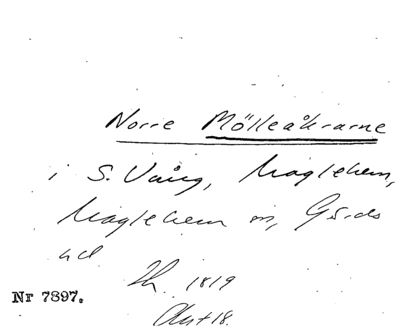 Norre Mölleåkrarne
i S. Vång, Maglehem,
Maglehem sn, Gärds
hd.
1819
Nr 7897.
Akt 18.